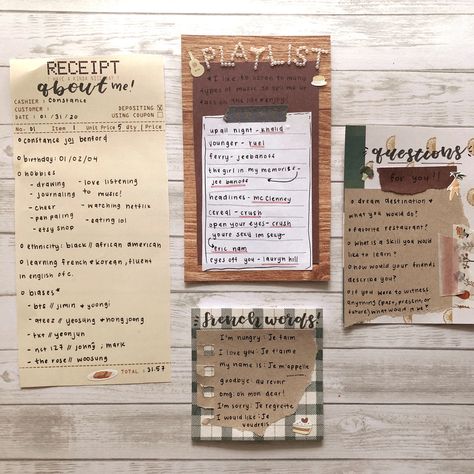 RECEIPT
about me!
CASHIER : Constance
CUSTOMER :
DATE : 01/31/20
DEPOSITING
USING COUPON
No. 01 Item 1 Unit Price 5 Qty Prc
constance joi benford
birthday: 01/02/04
hobbies
- drawing
- journaling
- cheer
- pen paling
- etsy shop
- love listening
to music!
- watching netflix
- eating lol
ethnicity: black // african american
learning french & korean, fluent
in english ofc.
biases*
- bts // jimin & yoongi
- ateez // yeosang & hongjoong
- txt // yeonjun
- nct 127 // johnny, mark
- the rose // woosung
TOTAL : 31.57
PLAYLIST
I like to listen to many
types of music
upall night - khalid
younger - ruel
ferry - jeebanoff
the girl in my memories -
jee banoff
headlines - mcclenney
cereal - crush
open your eyes - crush
youre sexy im sexy -
eric nam
eyes off you - lauryn hill
questions
for you!!
dream destination &
what you would do?
favorite restaurant?
what is a skill you would
like to learn?
how would your friends
describe you?
if you were to witness
anything (past, present, or
future) what would it be?
french words!
I'm hungry : Je faim
I love you : Je t'aime
My name is : Je m'appelle
goodbye : au revoir
omg : oh mon dear!
I'm sorry : Je regrette
I would like : Je
voudrais